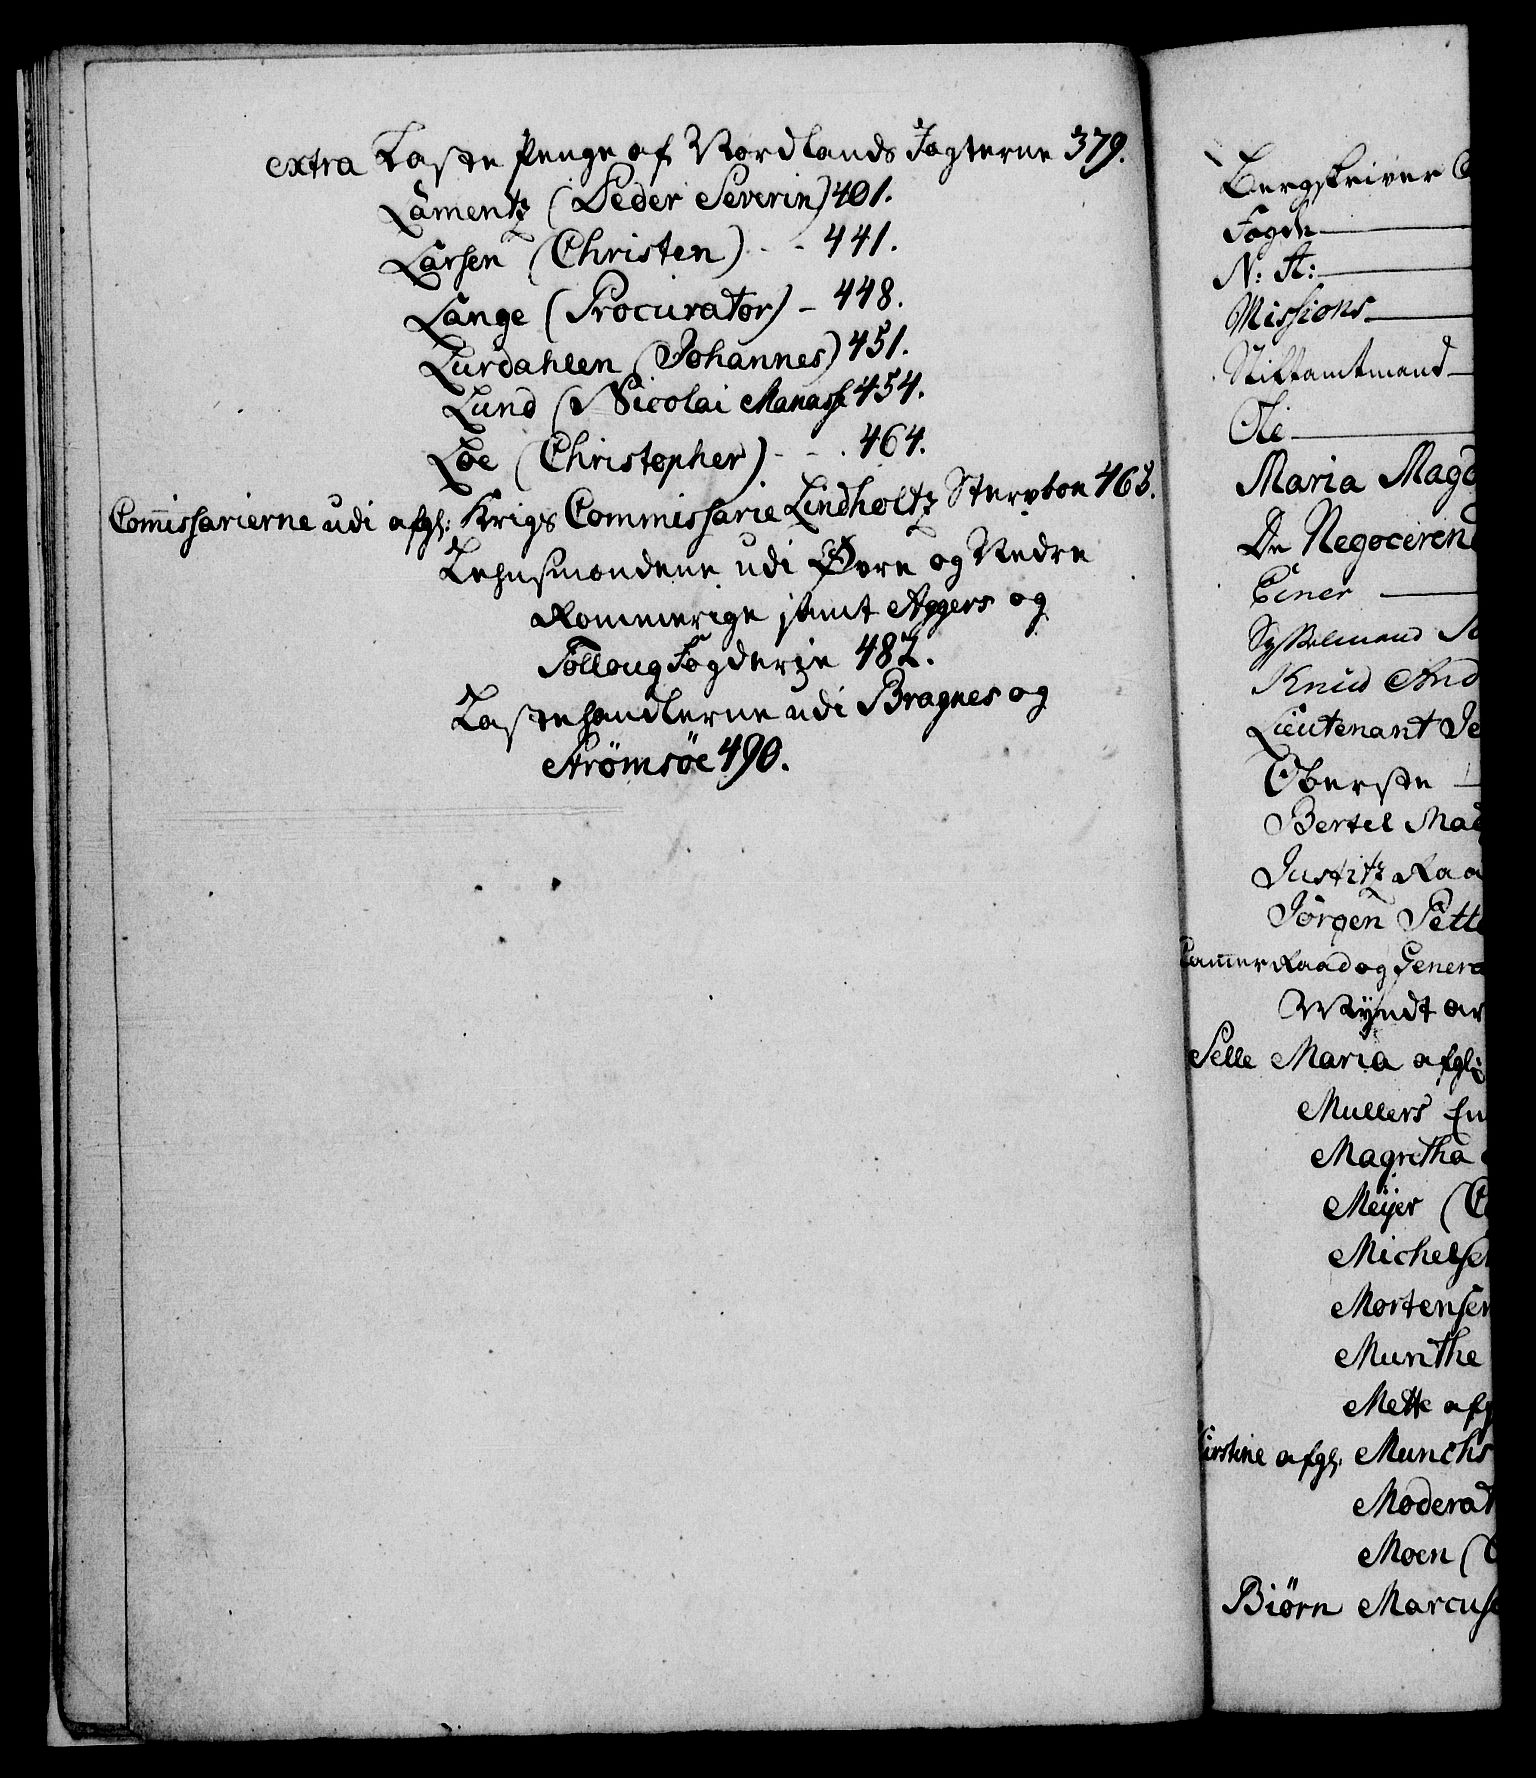 extra Læste Penge af Nordlands Jagterne 379.
Lâmentz (Peder Severin) 401.
Larsen (Christen) - - 441.
Lange (Procurator) - 448.
Lurdahlen (Johannes) 451.
Lund (Nicolai Manass 454.
Loe (Christopher) - - . 464.
Com̅issarierne udi afgl: Krigs Commissarie Lindholtz Sterboe 465.
Lehnsmændene udi Øvre og Nedre
Rommerige samt Aggers og
Folloug Fogderje 482.
Lastehandlerne udi Bragnes og
Strömsöe 490.
Bergskriver
Fogde
N: St:
Missions
Stiftamtmand
Ole
Maria Magd
De Negocerend
Einer
Sysselmand
Knud And
Lieutenant Je
Oberste
Bertel Mad
Justitz Raa
Jörgen Pette
Cam̅er Raad og Genera
Mÿndt
Selle Maria afgl:
Mullers En
Magretha
Meÿer (
Michelsen
Mortensen
Munthe
Mette afg
Kirstine afgl. Munchs
Moderat
Moen (
Biörn Marcuse